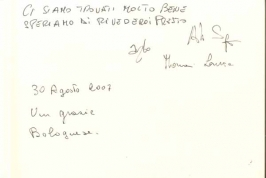 CI SIAMO TROVATI MOLTO BENE
SPERIAMO DI RIVEDERCI PRESTO
30 Agosto 2007
Un grazie
Bolognese.